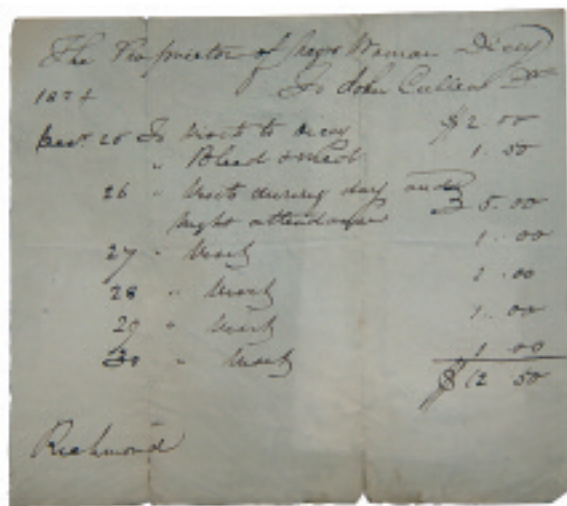 The Proprietor of Negro Woman Dicey
1824
To John Cullen Dr
25 To Visit to Dicey $2.00
" Bleed & Med 1.50
26 " Visits during day and 5.00
night attendance
27 " Visit 1.00
28 " Visit 1.00
29 " Visit 1.00
30 " Visit 1.00
$12.50
Richmond